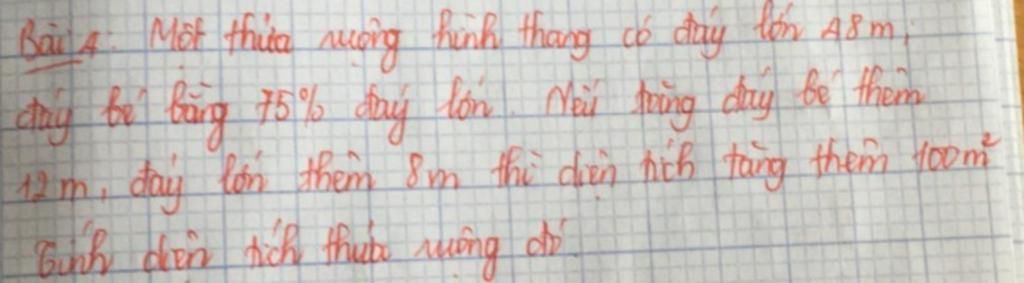 Bài 4: Một thửa ruộng hình thang có đáy lớn 48m,
đáy bé bằng 75% đáy lớn. Nếu tăng đáy bé thêm
12m, đáy lớn thêm 8m thì diện tích tăng thêm 100m²
Tính diện tích thửa ruộng đó